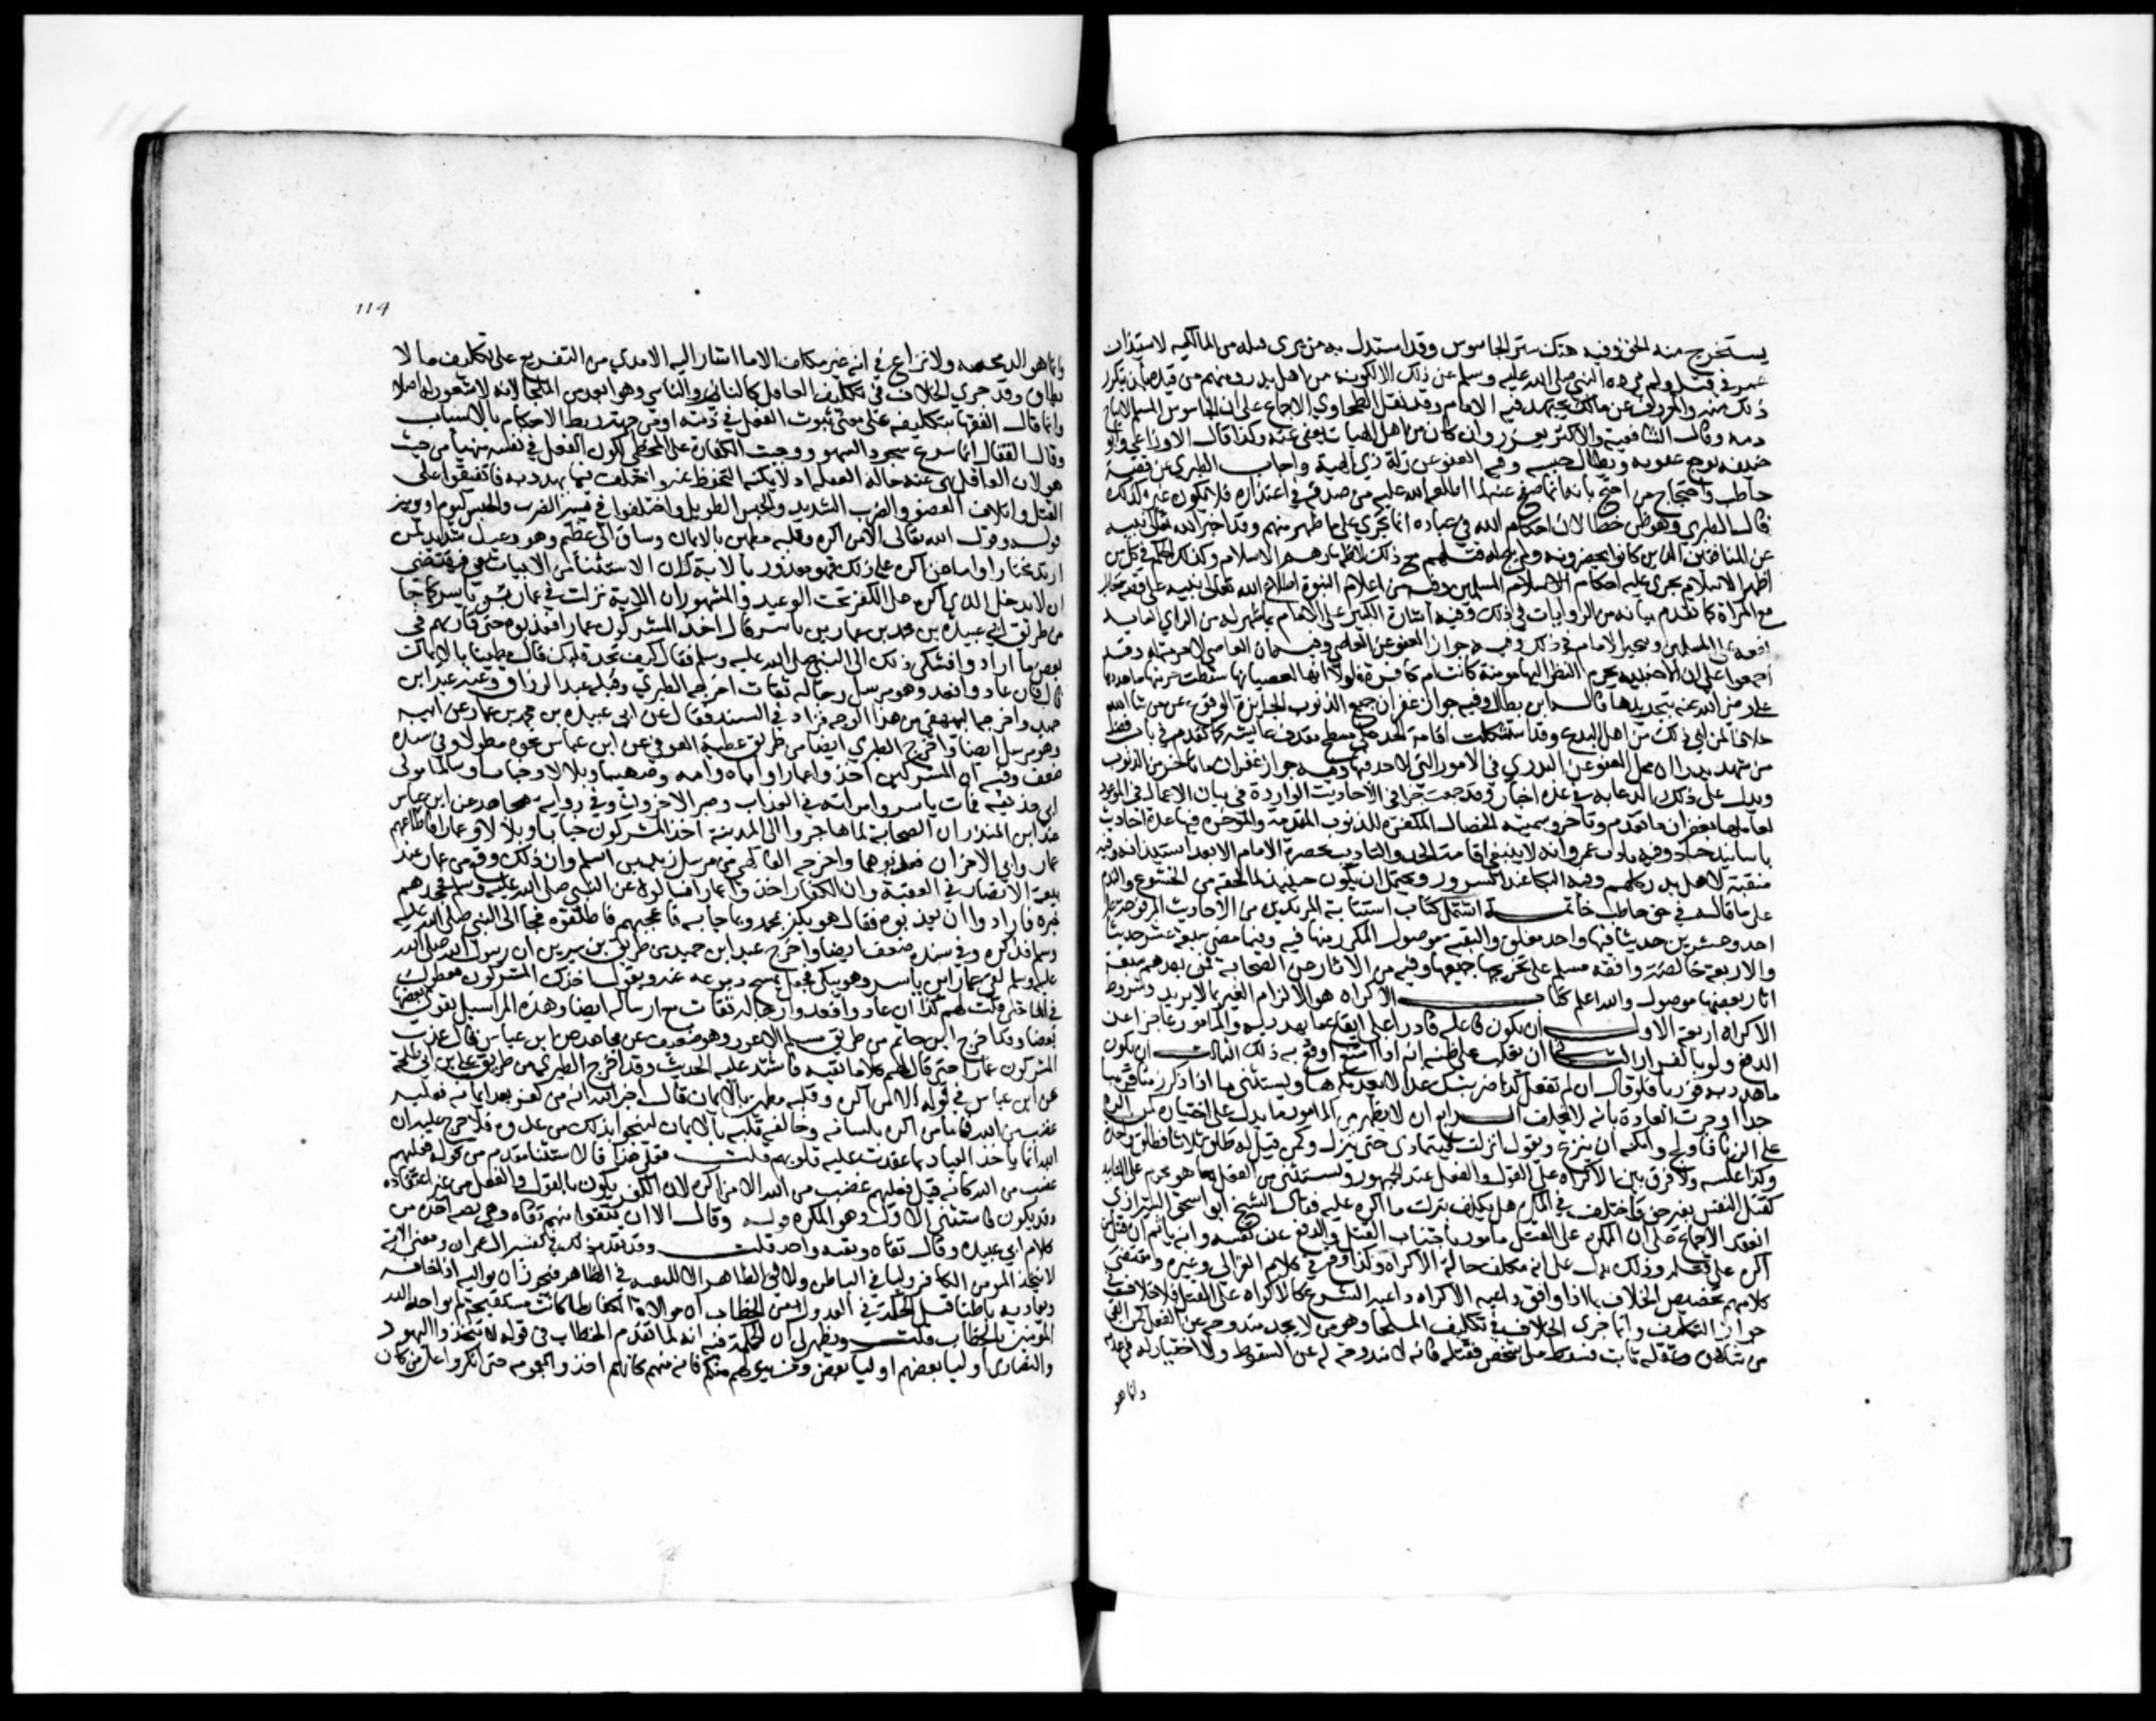 يستخرج منه الحق وفيه هتك ستر الجاسوس وقد استدل به من يرى قتله من المالكيه لاستيذان
عمر في قتله ولم يرده النبي صلى الله عليه وسلم عن ذلك الا لكونه من اهل بدر ومنهم من قيده بان يتكرر
ذلك منه والمعروف عن مالك يجتهد فيه الامام وقد نقل الطحاوي الاجماع على ان الجاسوس المسلم لا يباح
دمه وقال الشافعية والاكثر يعزر وان كان من اهل الهيات يعفى عنه وكذا قال الاوزاعي وابو
حنيفه يوجع عقوبه ويطال حبسه وفيه العفو عن زلة ذي الهيئة واجاب الطبري عن قصة
حاطب واحتجاج من احتج بانه انما صفح عنه لما اطلعه الله عليه من صدقه في اعتذاره فلا يكون غيره كذلك
قال الطبري وهو ظن خطا لان احكام الله في عباده انما تجري على ما ظهر منهم وقد اخبر الله تعالى نبيه
عن المنافقين الذين كانوا بحضرته ولم يبح له قتلهم مع ذلك لاظهارهم الاسلام وكذلك الحكم في كل من
اظهر الاسلام تجري عليه احكام الاسلام وفيه من اعلام النبوة اطلاع الله تعالى نبيه على قصة حاطب
مع المراة كما تقدم بيانه من الروايات في ذلك وفيه اشارة الكبير على الامام بما ظهر له من الراي العايد
نفعه على المسلمين ويتخير الامام في ذلك وفيه جواز العفو عن العاصي وفيه ان العاصي لا حرمة له وقد
اجمعوا على ان الاجنبيه يحرم النظر اليها مومنة كانت ام كافرة ولولا انها لعصيانها سقطت حرمتها ما هددها
علي رضي الله عنه بتجريدها قاله ابن بطال وفيه جواز غفران جميع الذنوب الجايزة الوقوع عن من شا الله
خلافا لمن ابى ذلك من اهل البدع وقد استشكلت اقامة الحد على مسطح بقذف عايشه كما تقدم في باب فضل
من شهد بدرا محل العفو عن البدري في الامور التي لا حد فيها وفيه جواز غفران ما تاخر من الذنوب
ويدل على ذلك الدعا به في عدة اخبار وقد جمعت جزا في الاحاديث الواردة في بيان الاعمال الموعود
لعاملها بغفران ما تقدم وما تاخر وسميته الخصال المكفره للذنوب المقدمة والموخره فيها عدة احاديث
باسانيد جياد وفيه تادب عمر وانه لا ينبغي اقامت الحد والتاديب بحضرة الامام الا بعد استيذانه وفيه
منقبة لاهل بدر كلهم وفيه البكا عند السرور ويحتمل ان يكون حينيذ لما لحقه من الخشوع والندم
على ما قاله في حق حاطب خاتمه اشتمل كتاب استتابة المرتدين من الاحاديث المرفوعه على
احد وعشرين حديثا فيها واحد معلق والبقية موصوله المكرر منها فيه وفيما مضى سبعة عشر حديثا
والاربعة خالصة وافقه مسلم على تخريجها جميعها وفيه من الاثار عن الصحابة فمن بعدهم سبعة
اثار بعضها موصول والله اعلم كتاب الاكراه هو الزام الغير بما لا يريد وشروط
الاكراه اربعة الاول ان يكون فاعله قادرا على ايقاع ما يهدد به والمامور عاجزا عن
الدفع ولو بالفرار الثاني ان يغلب على ظنه انه اذا امتنع اوقع به ذلك الثالث ان يكون
ما هدده به فوريا فلو قال ان لم تفعل كذا ضربتك غدا لا يعد مكرها ويستثنى ما اذا ذكر زمنا قريبا
جدا او جرت العادة بانه لا يخلف الرابع ان لا يظهر من المامور ما يدل على اختياره كمن اكره
على الزنا فاولج وامكنه ان ينزع ويقول انزلت فيتمادى حتى ينزل وكمن قيل له طلق ثلاثا فطلق واحدة
وكذا عكسه ولا فرق بين الاكراه على القول والفعل عند الجمهور ويستثنى من الفعل ما هو محرم على التابيد
كقتل النفس بغير حق واختلف في المكره هل يكلف بترك ما اكره عليه فقال الشيخ ابو اسحق الشيرازي
انعقد الاجماع على ان المكره على القتل مامور باجتناب القتل والدفع عن نفسه وانه ياثم ان قتل من
اكره على قتله وذلك يدل على انه مكلف حالة الاكراه وكذا وقع في كلام الغزالي وغيره ومقتضى
كلامهم تخصيص الخلاف بما اذا وافق داعيه الاكراه داعيه الشرع كالاكراه على القتل فلا خلاف في
جواز التكليف وانما جرى الخلاف في تكليف الملجا وهو من لا يجد مندوحة عن الفعل كمن القي
من شاهق وعقله ثابت فسقط على شخص فقتله فانه لا مندوحة له عن السقوط ولا اختيار له في عدمه
وانما هو
114
وانما هو اله محضه ولا نزاع في انه غير مكلف الا ما اشار اليه الامدي من التفريع على تكليف ما لا
يطاق وقد جرى الخلاف في تكليف الغافل كالنائم والناسي وهو ابعد من الملجا لانه لا شعور له اصلا
وانما قال الفقها بتكليفه على معنى ثبوت الفعل في ذمته او من جهة ربط الاحكام بالاسباب
وقال القفال انما شرع سجود السهو ووجبت الكفارة على المخطي لكون الفعل في نفسه منهيا من حيث
هو لا ان الغافل نهي عنه حالة الغفله اذ لا يمكنه التحفظ عنه واختلف فيما يهدد به فاتفقوا على
القتل واتلاف العضو والضرب الشديد والحبس الطويل واختلفوا في يسير الضرب والحبس كيوم او يومين
قوله وقول الله تعالى الا من اكره وقلبه مطمين بالايمان وساق الى عظيم وهو وعيد شديد لمن
ارتد مختارا واما من اكره على ذلك فهو معذور بالاية لان الاستثنا من الاثبات نفي فيقتضي
ان لا يدخل الذي اكره على الكفر تحت الوعيد والمشهور ان الاية نزلت في عمار بن ياسر كما جا
من طريق ابي عبيدة بن محمد بن عمار بن ياسر قال اخذ المشركون عمارا فعذبوه حتى قاربهم في
بعض ما ارادوا فشكى ذلك الى النبي صلى الله عليه وسلم فقال كيف تجد قلبك قال مطمينا بالايمان
قال فان عادوا فعد وهو مرسل ورجاله ثقات اخرجه الطبري وقبله عبد الرزاق وعنه عبد ابن
حميد واخرجه البيهقي من هذا الوجه فزاد في السند فقال عن ابي عبيده بن محمد بن عمار عن ابيه
وهو مرسل ايضا واخرج الطبري ايضا من طريق عطية العوفي عن ابن عباس نحوه مطولا وفي سنده
ضعف وفيه ان المشركين اخذوا عمارا واباه وامه وصهيبا وبلالا وخبابا وسالما مولى
ابي حذيفه فمات ياسر وامراته في العذاب وصبر الاخرون وفي رواية مجاهد عن ابن عباس
عند ابن المنذر ان الصحابة لما هاجروا الى المدينة اخذ المشركون خبابا وبلالا وعمارا فاطاعهم
عمار وابى الاخران فعذبوهما واخرجه الفاكهي من مرسل زيد بن اسلم وان ذلك وقع من عمار عند
بيعة الانصار في العقبة وان الكفار اخذوا عمارا فسالوه عن النبي صلى الله عليه وسلم فجحدهم
خبره فارادوا ان يعذبوه فقال هو يكفر بمحمد وبما جا به فاعجبهم فاطلقوه فجا الى النبي صلى الله عليه
وسلم فذكره وفي سنده ضعف ايضا واخرج عبد ابن حميد من طريق بن سيرين ان رسول الله صلى الله
عليه وسلم لقي عمار ابن ياسر وهو يبكي فجعل يمسح دموعه عنه ويقول اخذك المشركون فغطوك
في الما حتى قلت لهم كذا ان عادوا فعد ورجاله ثقات مع ارساله ايضا وهذه المراسيل يقوي بعضها
بعضا وقد اخرج ابن حاتم من طريق مسلم الاعور وهو ضعيف عن مجاهد عن ابن عباس قال عذب
المشركون عمارا حتى قال لهم كلاما تقيه فاشتد عليه الحديث وقد اخرج الطبري من طريق علي بن ابي طلحة
عن ابن عباس في قوله الا من اكره وقلبه مطمين بالايمان قال اخبر الله انه من كفر بعد ايمانه فعليه
غضب من الله فاما من اكره بلسانه وخالفه قلبه بالايمان لينجو بذلك من عدوه فلا حرج عليه ان
الله انما ياخذ العباد بما عقدت عليه قلوبهم قلت فعلى هذا فالاستثنا مقدم من قوله فعليهم
غضب من الله كانه قيل فعليهم غضب من الله الا من اكره لان الكفر يكون بالقول والفعل من غير اعتقاد
وقد يكون فاستثني الاول وهو المكره قوله وقال الا ان تتقوا منهم تقاه وهي تقيه اخذه من
كلام ابي عبيده وقال تقاه وتقيه واحد قلت وقد تقدم ذلك في تفسير ال عمران ومعنى الاية
لا يتخذ المومن الكافر وليا في الباطن ولا في الظاهر الا للتقيه في الظاهر فيجوز ان يواليه اذا خافه
ويعاديه باطنا قيل الحكمة في العدول عن الخطاب ان موالاة الكفار لما كانت مستقبحة لم يواجه الله
المومنين بالخطاب قلت ويظهر لي ان الحكمة فيه انه لما تقدم الخطاب في قوله لا تتخذوا اليهود
والنصارى اوليا بعضهم اوليا بعض ومن يتولهم منكم فانه منهم كانهم اخذوا بعمومه حتى انكروا على من كان